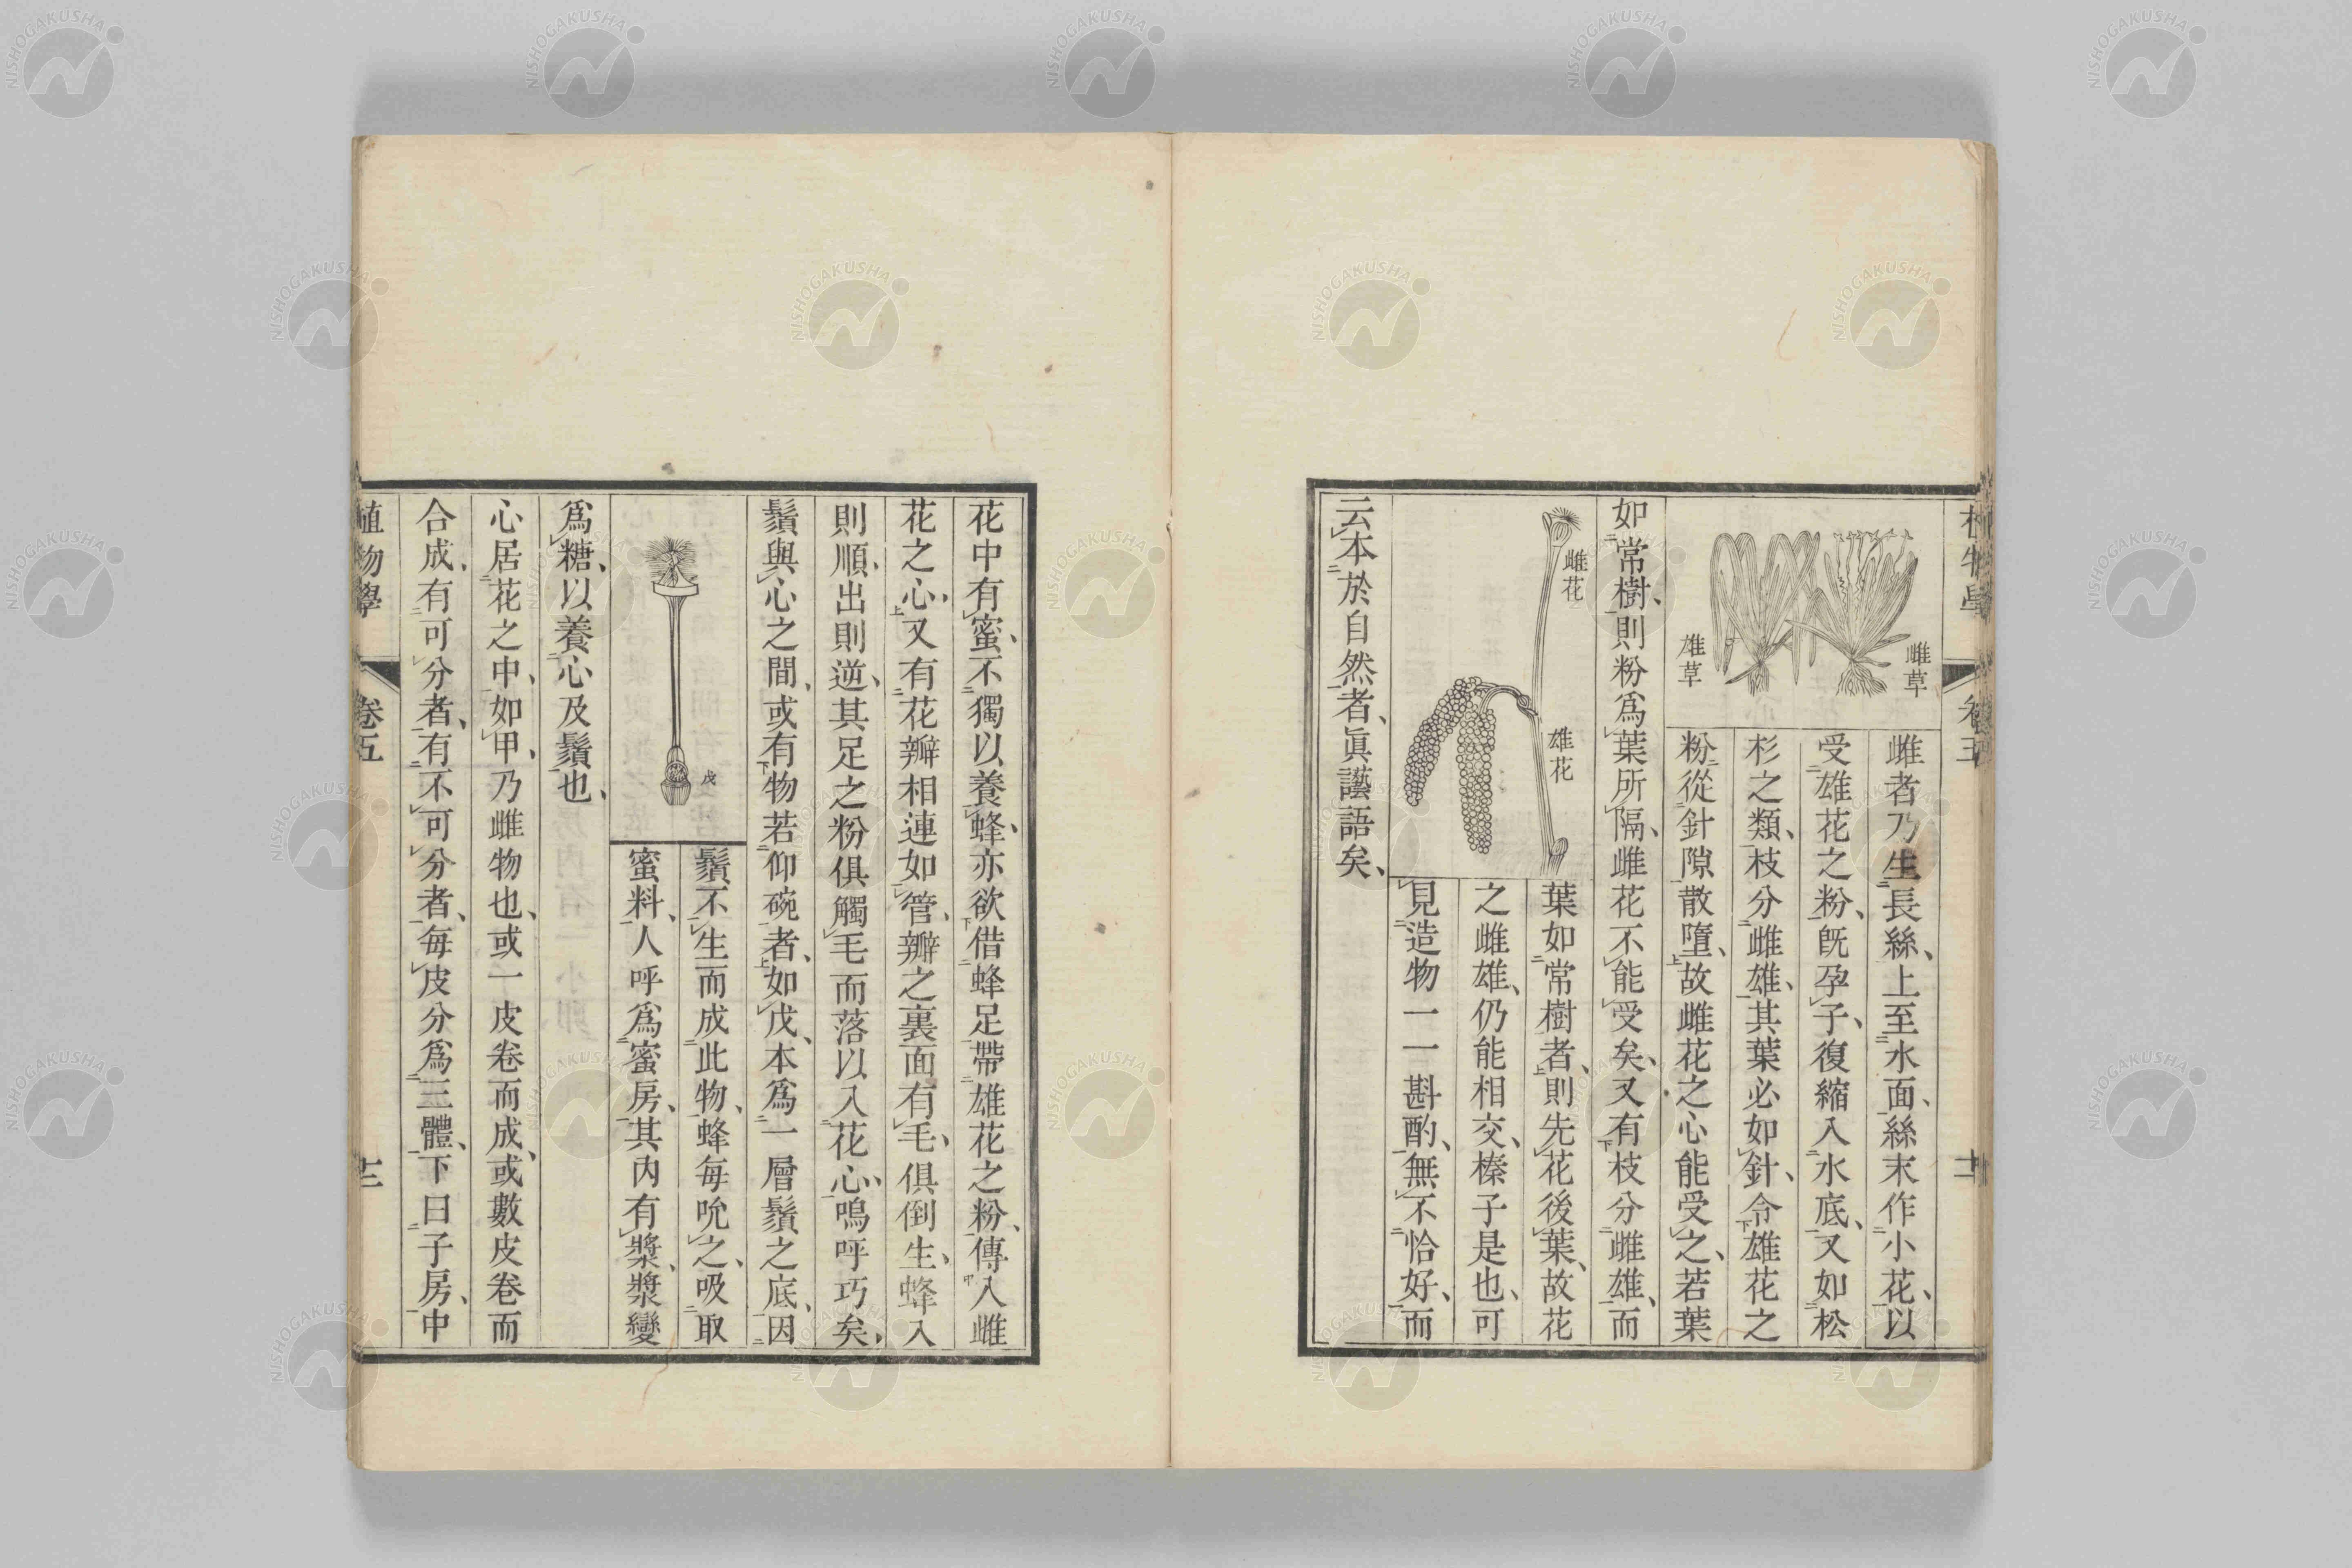 植物學 卷五 十二
雌草
雄草
雌者乃生長絲、上至水面、絲末作小花、以
受雄花之粉、旣孕子、復縮入水底、又如松
杉之類、枝分雌雄、其葉必如針、令雄花之
粉從針隙散墮、故雌花之心能受之、若葉
如常樹、則粉爲葉所隔、雌花不能受矣、又有枝分雌雄、而
雌花
雄花
葉如常樹者、則先花後葉、故花
之雌雄、仍能相交、榛子是也、可
見造物一一斟酌、無不恰好、而
云本於自然者、眞讆語矣、
花中有蜜、不獨以養蜂、亦欲借蜂足帶雄花之粉、傳入雌
花之心、又有花瓣相連如管、瓣之裏面有毛、俱倒生、蜂入
則順、出則逆、其足之粉俱觸毛而落以入花心、嗚呼巧矣、
鬚與心之間、或有物若仰碗者、如戊、本爲一層鬚之底、因
戊
鬚不生而成此物、蜂每吮之、吸取
蜜料、人呼爲蜜房、其內有漿、漿變
爲糖、以養心及鬚也、
心居花之中、如甲、乃雌物也、或一皮卷而成、或數皮卷而
合成、有可分者、有不可分者、每皮分爲三體、下曰子房、中
植物學 卷五 十三
NISHOGAKUSHA